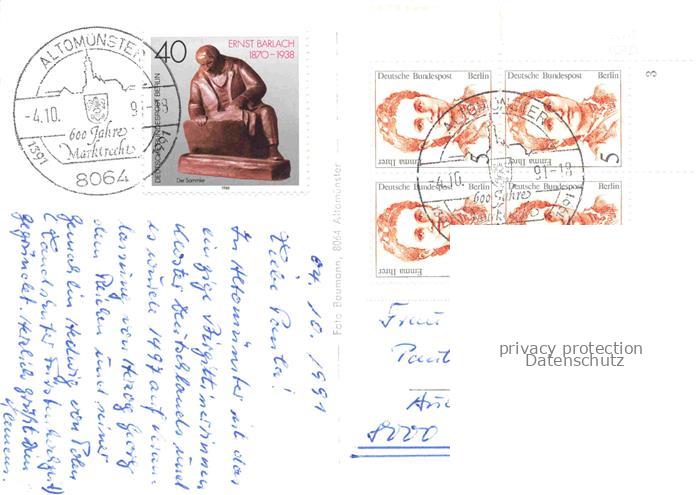 ALTOMÜNSTER
-4.10. 91-18
600 Jahre
Marktrecht
1391 1991
8064
40
ERNST BARLACH
1870-1938
DEUTSCHE BUNDESPOST BERLIN
Der Sammler
1988
Deutsche Bundespost Berlin
Emma Ihrer
5
Deutsche Bundespost Berlin
Emma Ihrer
5
Deutsche Bundespost Berlin
Emma Ihrer
Deutsche Bundespost Berlin
ALTOMÜNSTER
-4.10. 91-18
600 Jahre
3
Foto Baumann, 8064 Altomünster
04.10.1991
Liebe Paula!
In Altomünster ist das
einzige Birgittinerinnen
kloster Deutschlands und
es wurde 1497 auf Veran-
lassung von Herzog Georg
dem Reichen und seiner
Gemahlin Hedwig von Polen
(Landshuter Fürstenhochzeit)
gegründet. Herzlich grüßt Dein
Klemens.
Frau
8000
privacy protection
Datenschutz